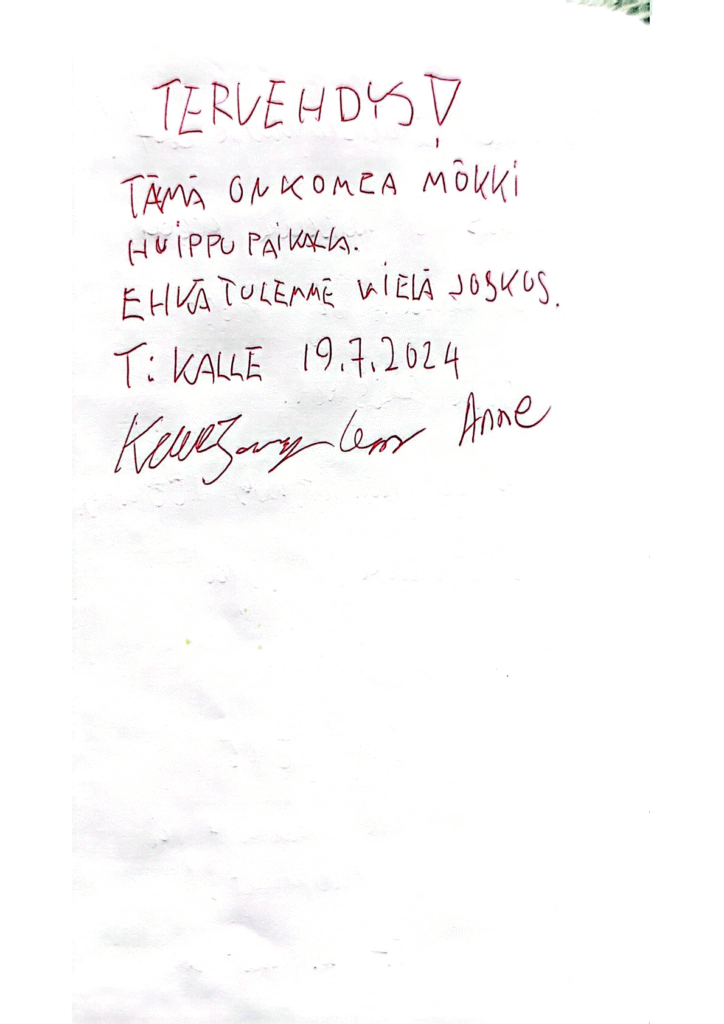 TERVEHDYS!
TÄMÄ ON KOMEA MÖKKI
HUIPPU PAIKALLA.
EHKÄ TULEMME VIELÄ JOSKUS.
T: KALLE 19.7.2024
Anne